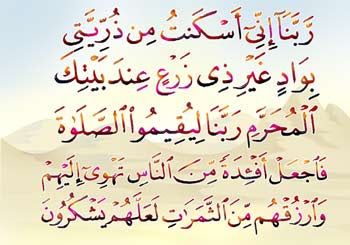 رَبَّنَآ إِنِّىٓ أَسْكَنتُ مِن ذُرِّيَّتِى
بِوَادٍ غَيْرِ ذِى زَرْعٍ عِندَ بَيْتِكَ
ٱلْمُحَرَّمِ رَبَّنَا لِيُقِيمُوا۟ ٱلصَّلَوٰةَ
فَٱجْعَلْ أَفْـِٔدَةً مِّنَ ٱلنَّاسِ تَهْوِىٓ إِلَيْهِمْ
وَٱرْزُقْهُم مِّنَ ٱلثَّمَرَٰتِ لَعَلَّهُمْ يَشْكُرُونَ